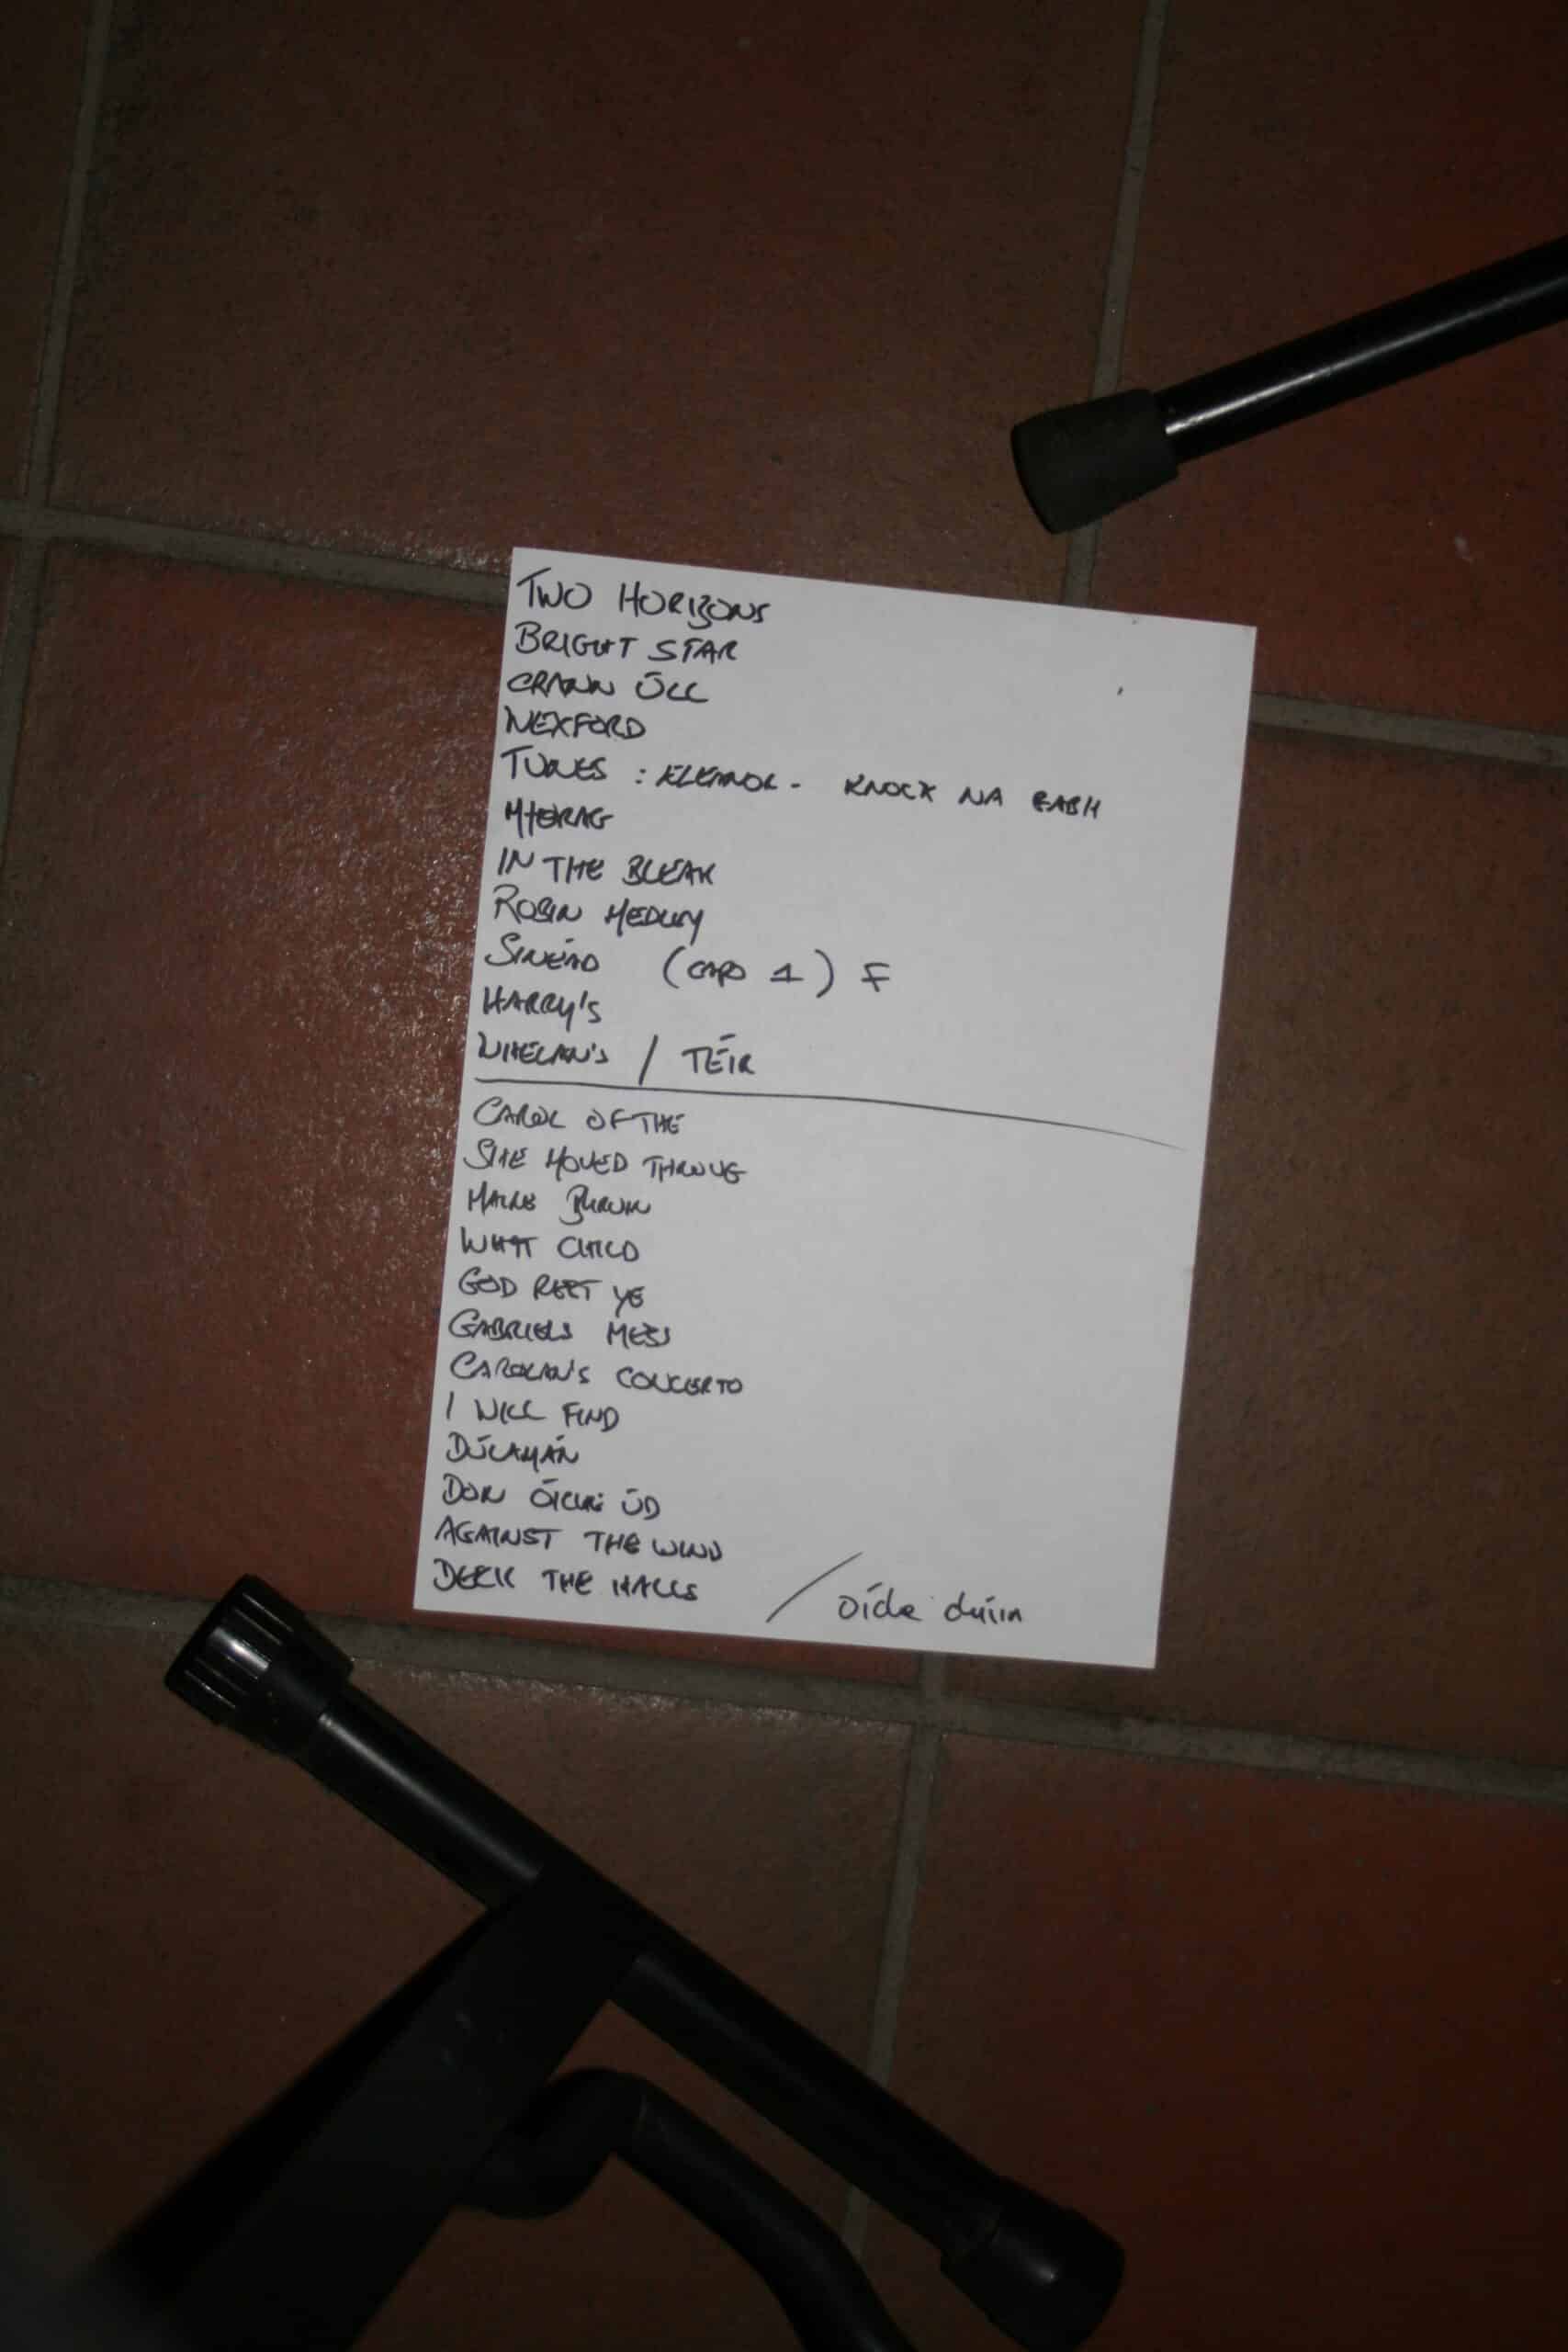 TWO HORIZONS
BRIGHT STAR
CRANN ÚLL
WEXFORD
TUNES : ELEANOR - KNOCK NA
MHORAG
IN THE BLEAK
ROBIN MEDLEY
SINÉAD (CAPO 1) F
HARRY'S
WHELAN'S / TÉIR
CAROL OF THE
SHE MOVED THROUG
WHAT CHILD
GOD REST YE
GABRIELS MESS
CAROLAN'S CONCERTO
I WILL FIND
DÚLAMÁN
DON ÓICHE ÚD
AGAINST THE WIND
DECK THE HALLS / oíche